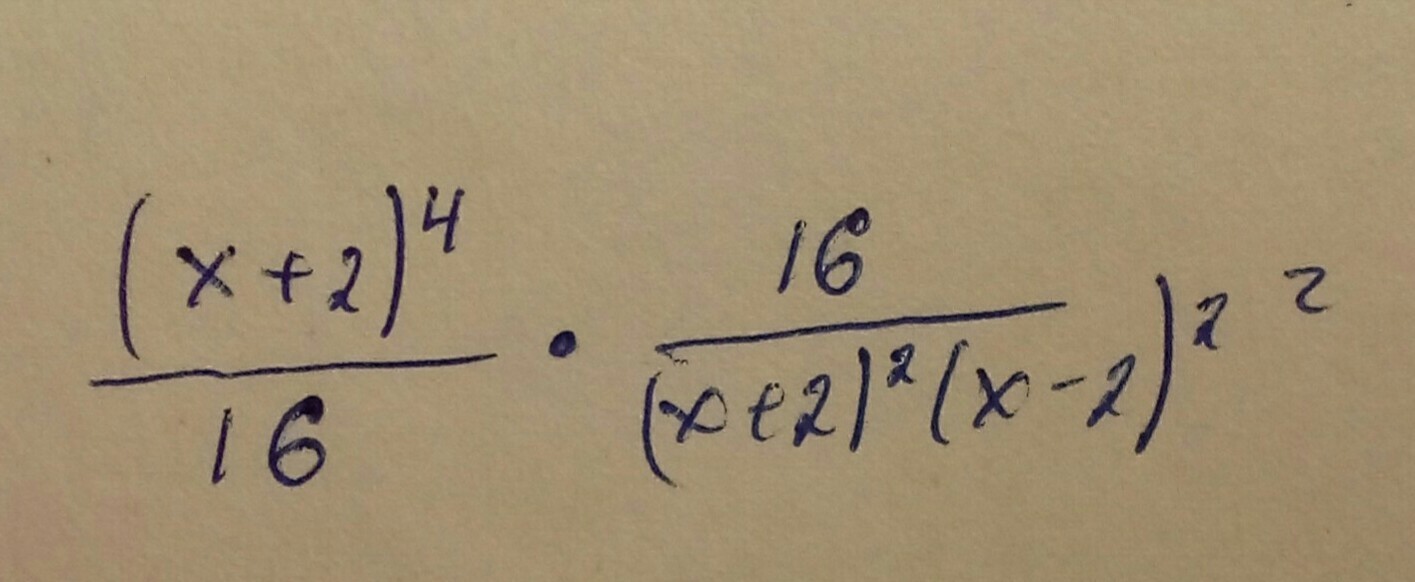 (x+2)^4/16 · 16/(x+2)^2(x-2)^2 2